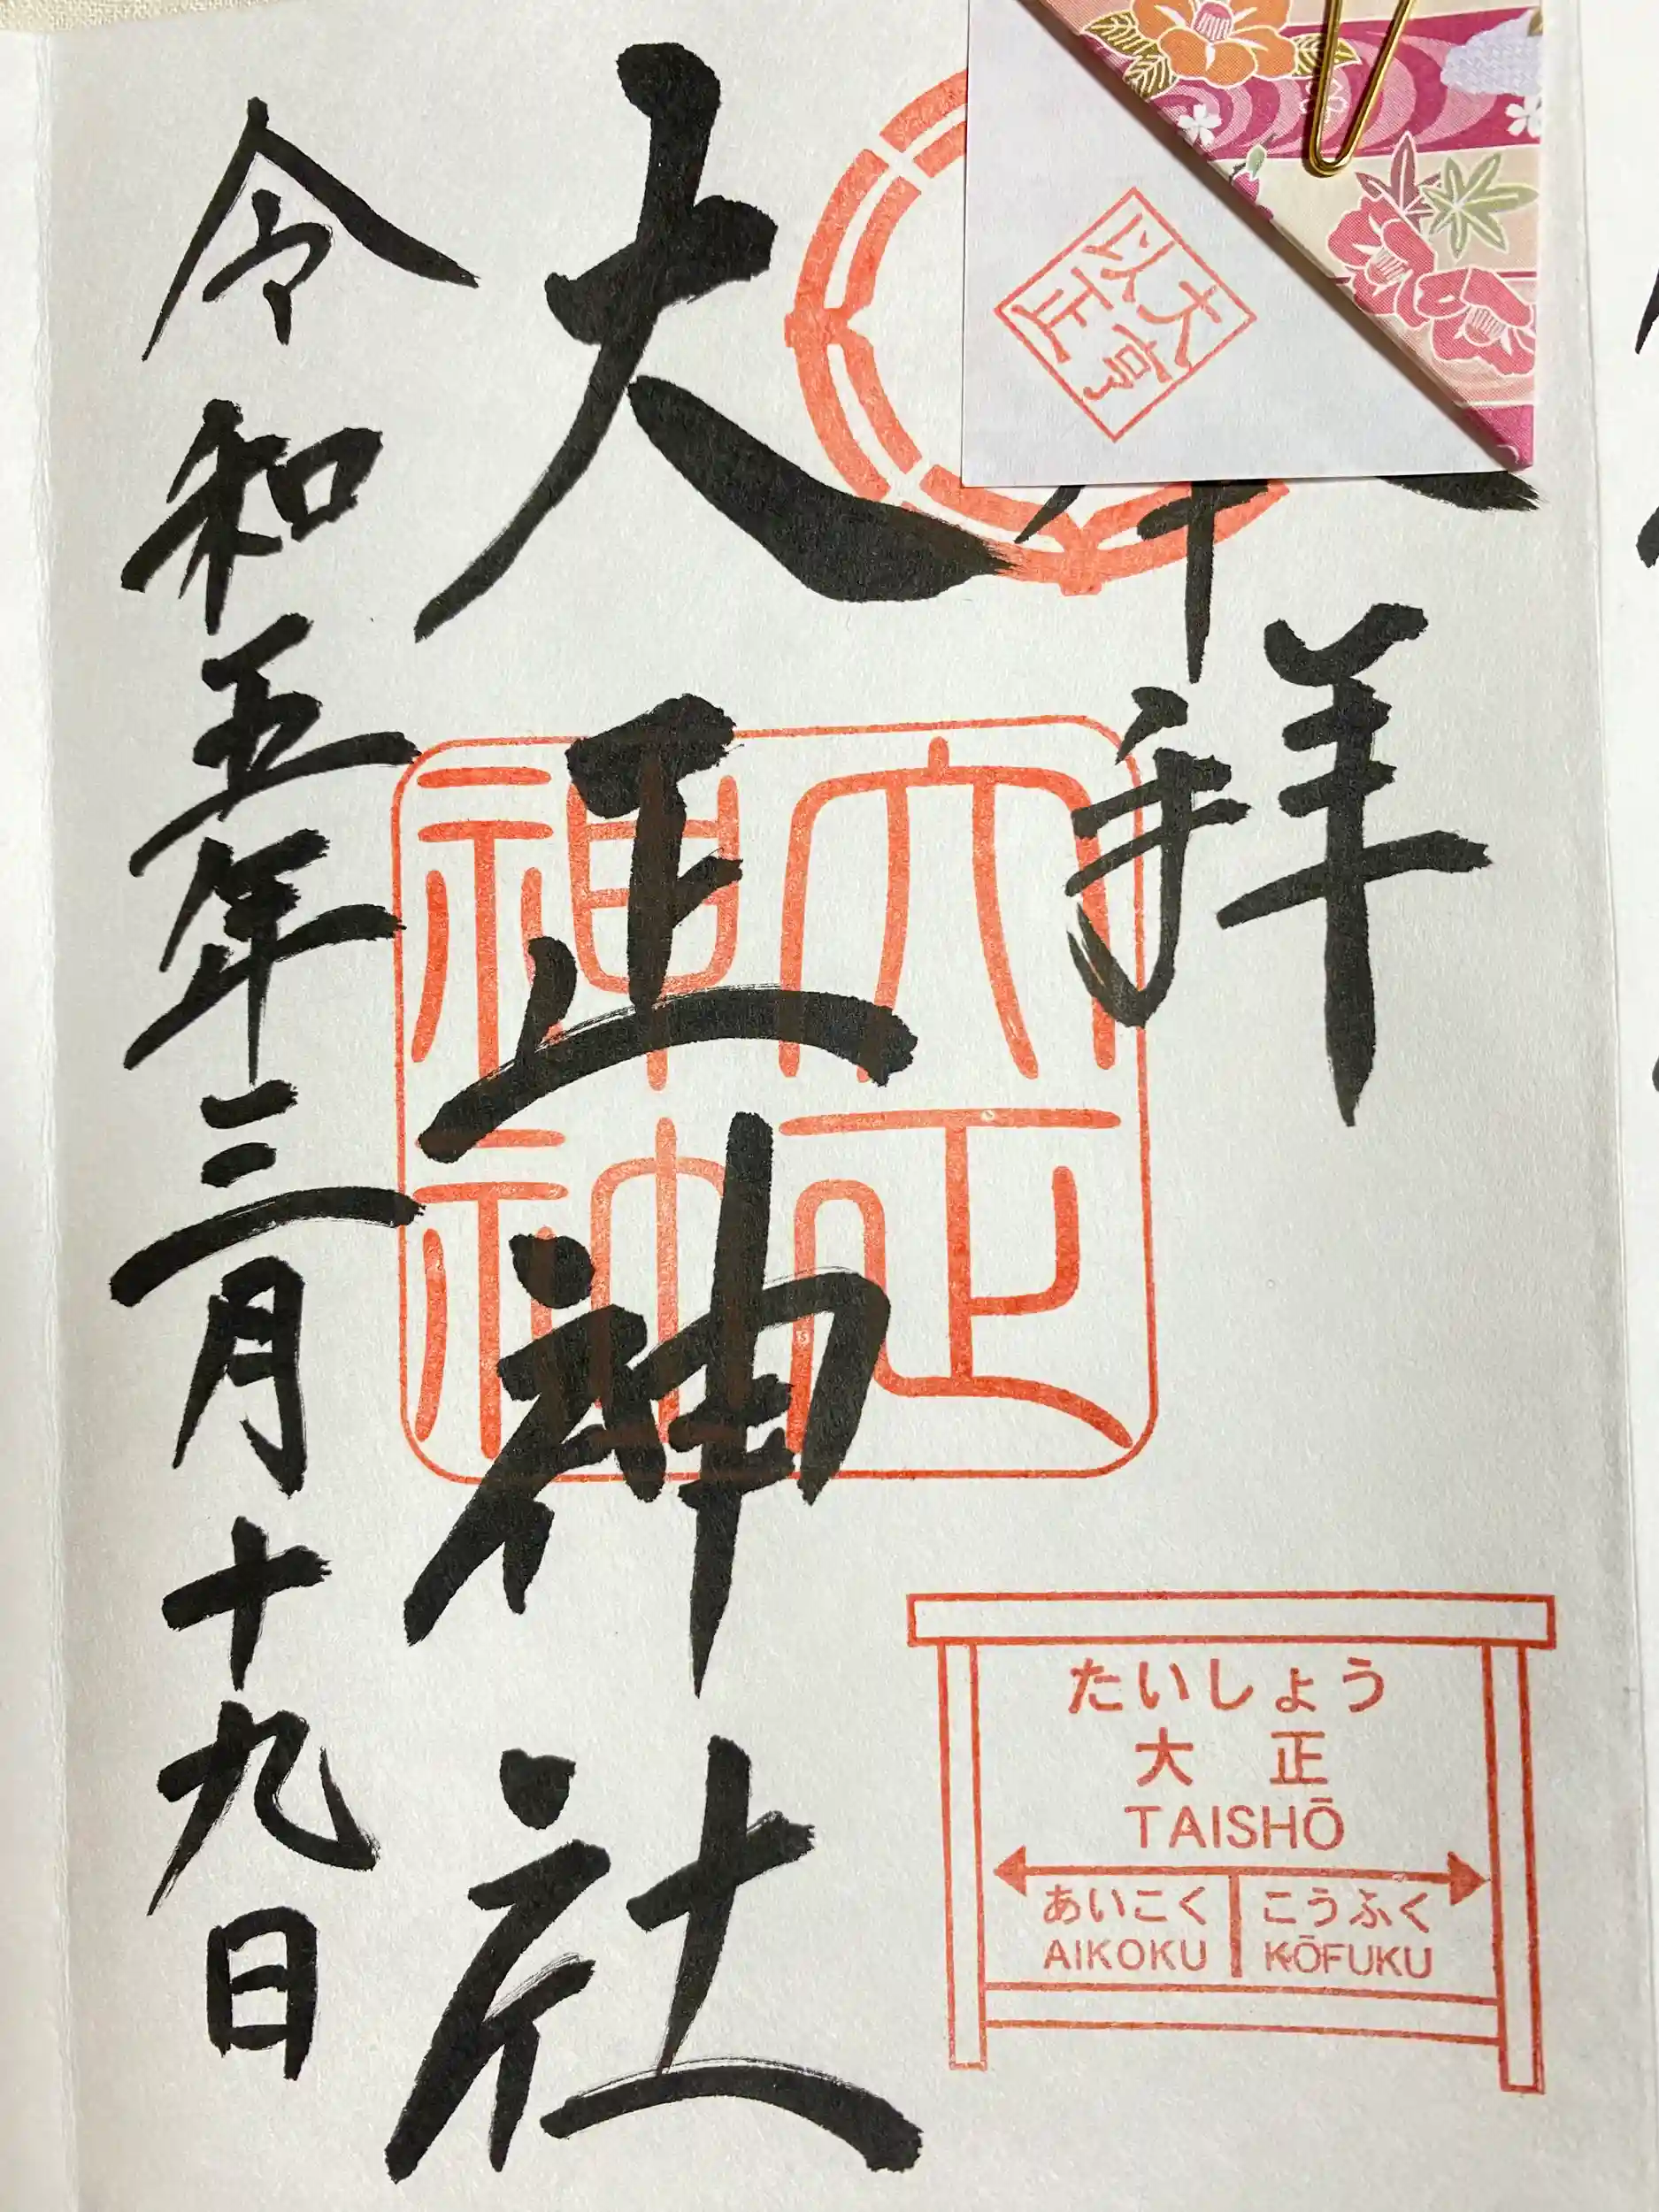 大亨
以正
奉拝
大正神社
大正
神社
令和五年三月十九日
たいしょう
大正
TAISHŌ
あいこく こうふく
AIKOKU KŌFUKU